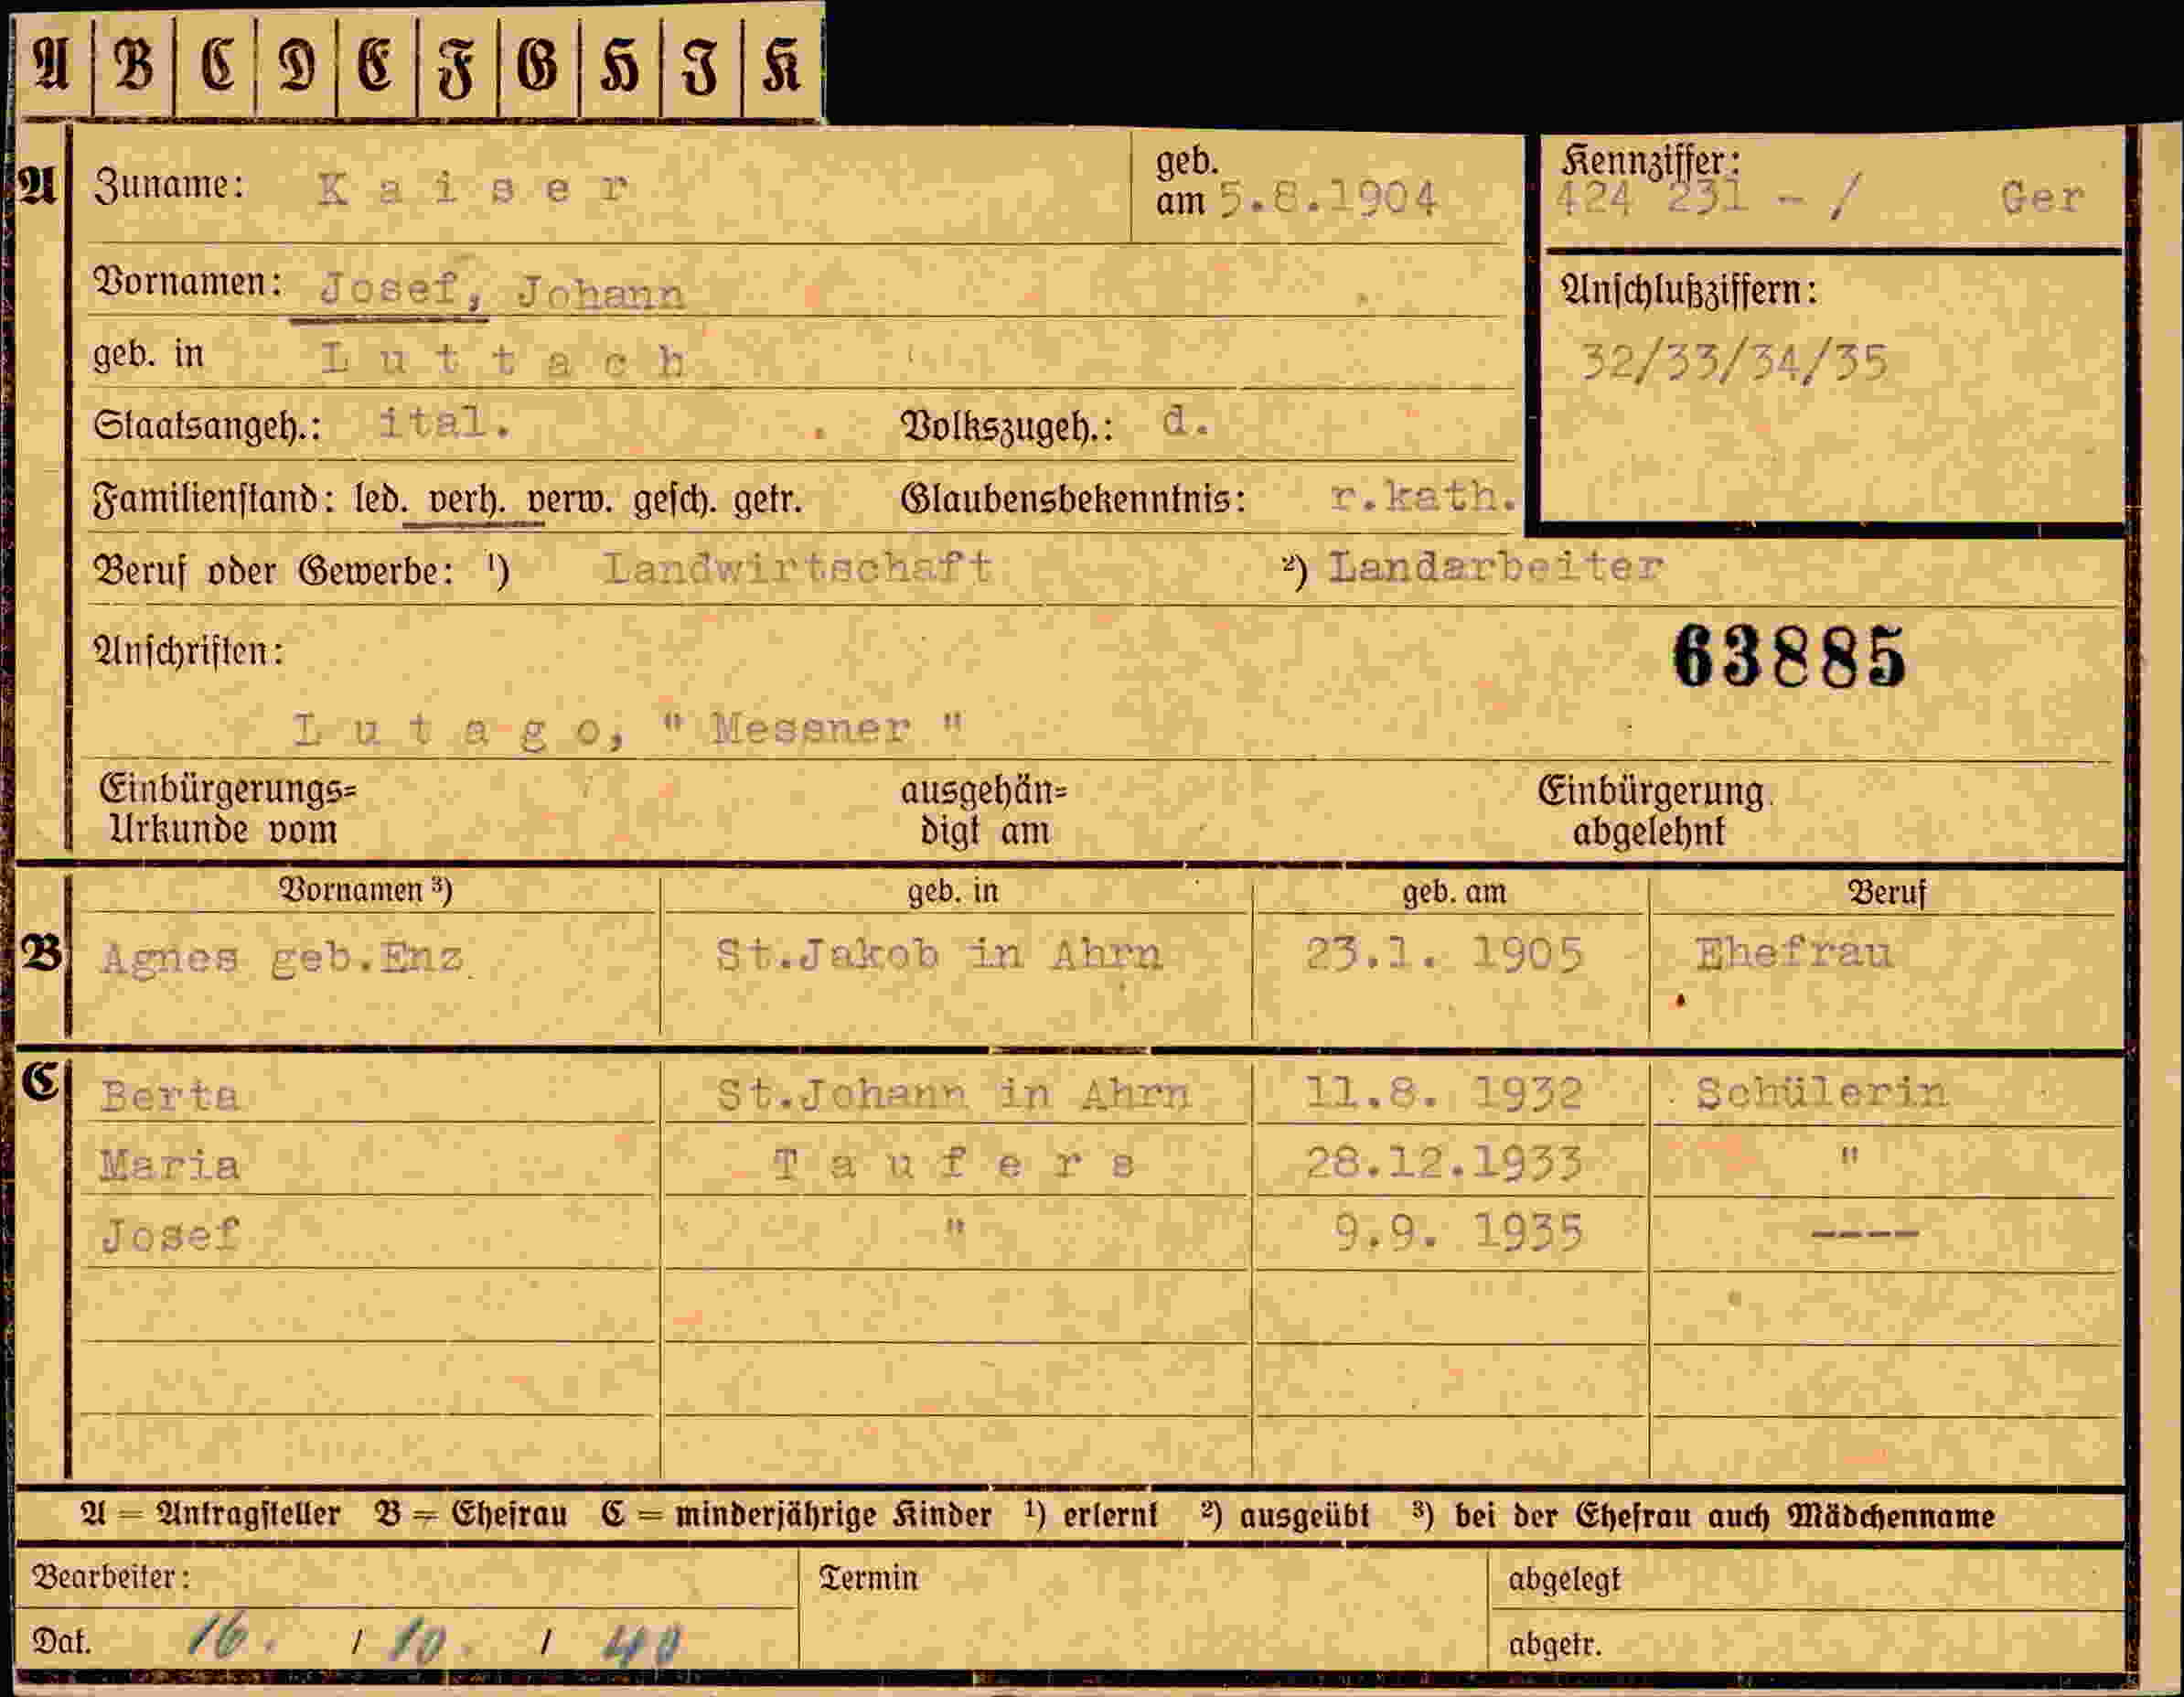 A B C D E F G H I K
A Zuname: Kaiser geb. am 5.8.1904 Kennziffer: 424 231 - / Ger
Vornamen: Josef, Johann Anschlußziffern:
geb. in Luttach 32/33/34/35
Staatsangeh.: ital. Volkszugeh.: d.
Familienstand: led. verh. verw. gesch. getr. Glaubensbekenntnis: r.kath.
Beruf oder Gewerbe: ¹) Landwirtschaft ²) Landarbeiter
Anschriften: 63885
Lutago, " Messner "
Einbürgerungs= ausgehän= Einbürgerung
Urkunde vom digt am abgelehnt
Vornamen ³) geb. in geb. am Beruf
B Agnes geb.Enz St.Jakob in Ahrn 23.1. 1905 Ehefrau
C Berta St.Johann in Ahrn 11.8. 1932 Schülerin
Maria Taufers 28.12.1933 "
Josef " 9.9. 1935 ----
A = Antragsteller B = Ehefrau C = minderjährige Kinder ¹) erlernt ²) ausgeübt ³) bei der Ehefrau auch Mädchenname
Bearbeiter: Termin abgelegt
Dat. 16. / 10. / 40 abgetr.